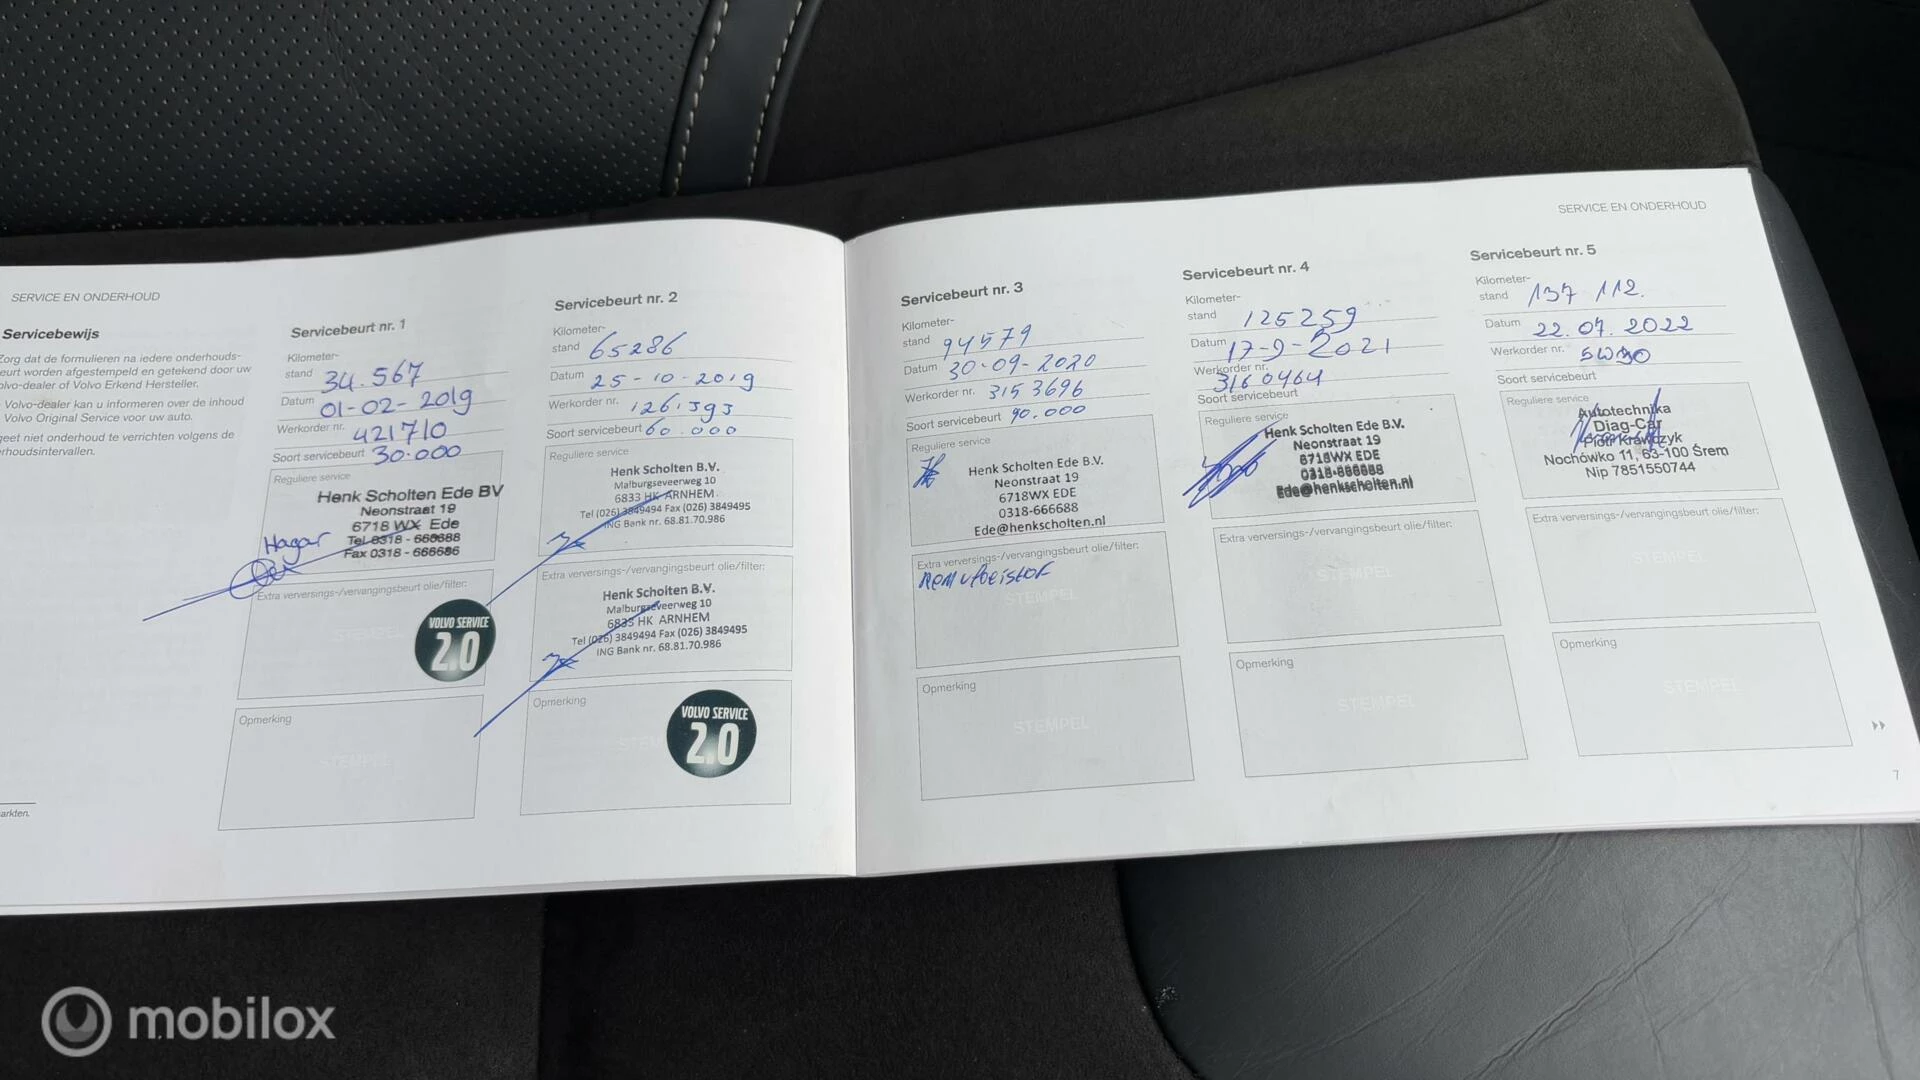 SERVICE EN ONDERHOUD
Servicebewijs
Zorg dat de formulieren na iedere onderhouds-
eurt worden afgestempeld en getekend door uw
olvo-dealer of Volvo Erkend Hersteller.
Volvo-dealer kan u informeren over de inhoud
Volvo Original Service voor uw auto.
geet niet onderhoud te verrichten volgens de
rhoudsintervallen.
arkten.
Servicebeurt nr. 1
Kilometer-
stand 34.567
Datum 01-02-2019
Werkorder nr. 421710
Soort servicebeurt 30.000
Reguliere service
Henk Scholten Ede BV
Neonstraat 19
6718 WX Ede
Tel 0318 - 666688
Fax 0318 - 666686
Hagar
Extra verversings-/vervangingsbeurt olie/filter:
STEMPEL
VOLVO SERVICE
2.0
Opmerking
STEMPEL
Servicebeurt nr. 2
Kilometer-
stand 65286
Datum 25-10-2019
Werkorder nr.
Soort servicebeurt 60.000
Reguliere service
Henk Scholten B.V.
Malburgseveerweg 10
6833 HK ARNHEM
Tel (026) 3849494 Fax (026) 3849495
ING Bank nr. 68.81.70.986
Extra verversings-/vervangingsbeurt olie/filter:
Henk Scholten B.V.
Malburgseveerweg 10
6833 HK ARNHEM
Tel (026) 3849494 Fax (026) 3849495
ING Bank nr. 68.81.70.986
Opmerking
STEM
VOLVO SERVICE
2.0
Servicebeurt nr. 3
Kilometer-
stand 94579
Datum 30-09-2020
Werkorder nr. 3153696
Soort servicebeurt 90.000
Reguliere service
Henk Scholten Ede B.V.
Neonstraat 19
6718WX EDE
0318-666688
Ede@henkscholten.nl
Extra verversings-/vervangingsbeurt olie/filter:
Remvloeistof
STEMPEL
Opmerking
STEMPEL
SERVICE EN ONDERHOUD
Servicebeurt nr. 4
Kilometer-
stand 125259
Datum 17-9-2021
Werkorder nr.
3160464
Soort servicebeurt
Reguliere service
Henk Scholten Ede B.V.
Neonstraat 19
6718WX EDE
0318-666688
Ede@henkscholten.nl
Extra verversings-/vervangingsbeurt olie/filter:
STEMPEL
Opmerking
STEMPEL
Servicebeurt nr. 5
Kilometer-
stand 137 112.
Datum 22.07.2022
Werkorder nr. 5W30
Soort servicebeurt
Reguliere service
Autotechnika
Diag-Car
Piotr Krawczyk
Nochówko 11, 63-100 Śrem
Nip 7851550744
Extra verversings-/vervangingsbeurt olie/filter:
STEMPEL
Opmerking
STEMPEL
7
mobilox